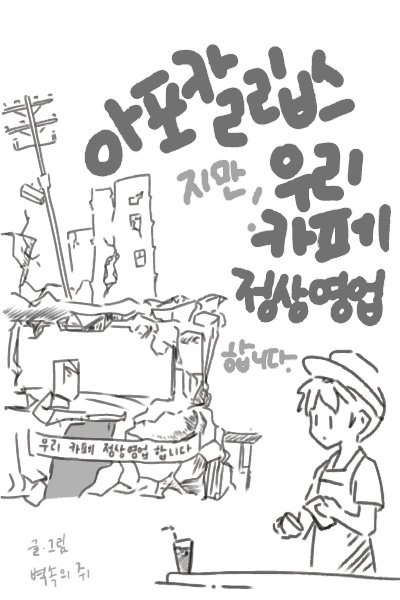 아포칼립스
지만, 우리
카페
정상영업
합니다.
우리 카페 정상영업 합니다
글·그림
벽속의 쥐